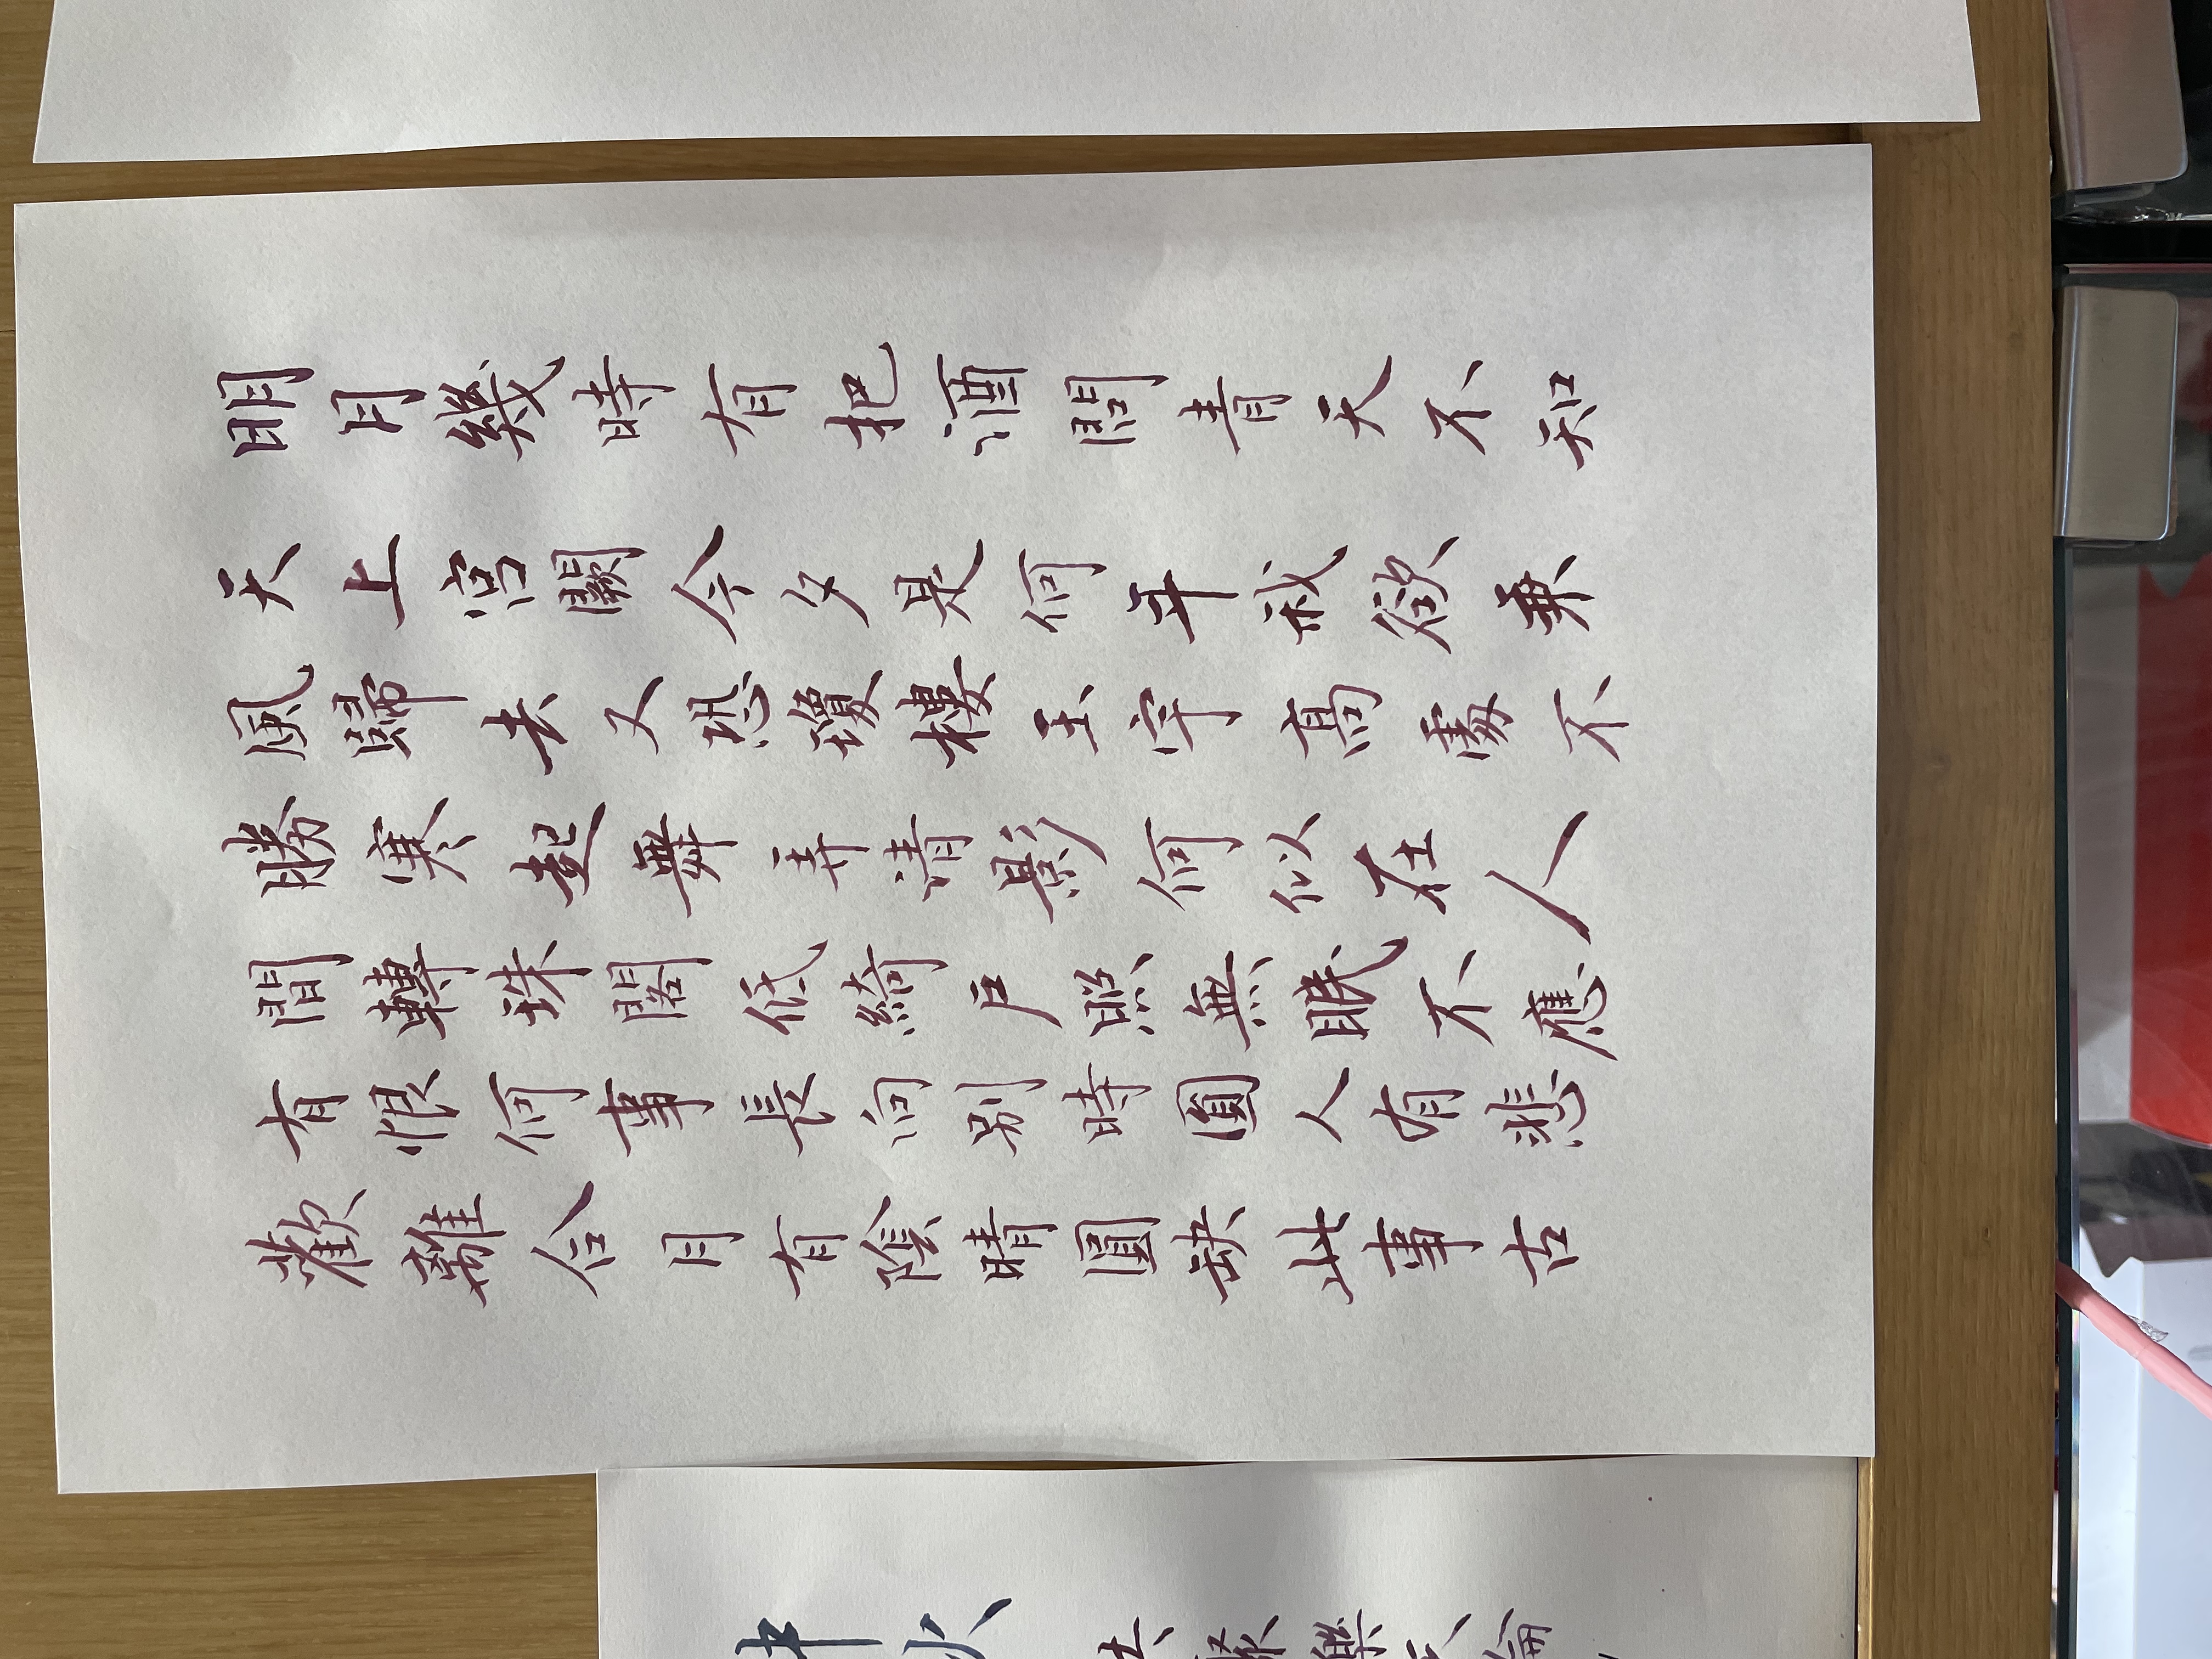 明月幾時有把酒問青天不知
天上宮闕今夕是何年我欲乘
風歸去又恐瓊樓玉宇高處不
勝寒起舞弄清影何似在人
間轉珠閣低綺戶照無眠不應
有恨何事長向別時圓人有悲
歡離合月有陰晴圓缺此事古